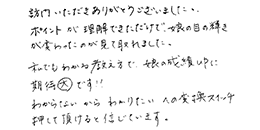 訪問いただきありがとうございました。
ポイントが理解できただけで、娘の目の輝き
が変わったのが見て取れました。
私でもわかる教え方で、娘の成績UPに
期待大です!!
わからないからわかりたいへの変換スイッチ
押して頂けると信じています。